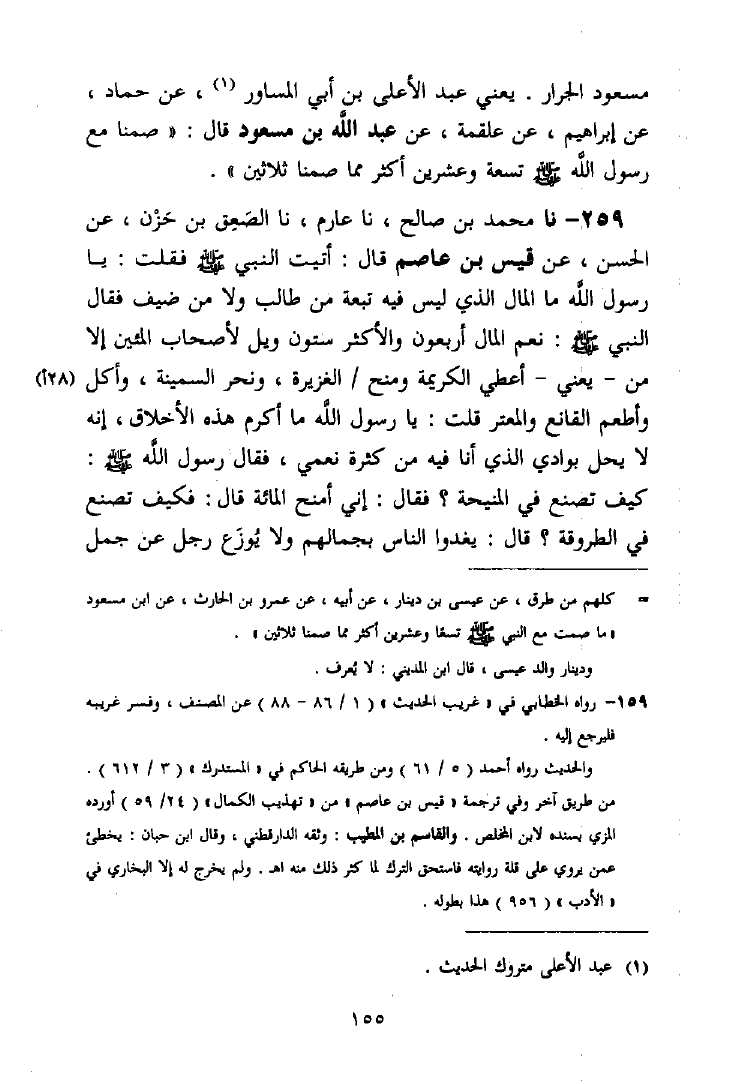 مسعود الجرار . يعني عبد الأعلى بن أبي المساور (١) ، عن حماد ،
عن إبراهيم ، عن علقمة ، عن عبد اللَّه بن مسعود قال : « صمنا مع
رسول اللَّه ﷺ تسعة وعشرين أكثر مما صمنا ثلاثين » .
٢٥٩- نا محمد بن صالح ، نا عارم ، نا الصَعِق بن حَزْن ، عن
الحسن ، عن قيس بن عاصم قال : أتيت النبي ﷺ فقلت : يا
رسول اللَّه ما المال الذي ليس فيه تبعة من طالب ولا من ضيف فقال
النبي ﷺ : نعم المال أربعون والأكثر ستون ويل لأصحاب المئين إلا
من - يعني - أعطي الكريمة ومنح / الغزيرة ، ونحر السمينة ، وأكل (٢٨أ)
وأطعم القانع والمعتر قلت : يا رسول اللَّه ما أكرم هذه الأخلاق ، إنه
لا يحل بوادي الذي أنا فيه من كثرة نعمي ، فقال رسول اللَّه ﷺ :
كيف تصنع في المنيحة ؟ فقال : إني أمنح المائة قال : فكيف تصنع
في الطروقة ؟ قال : يغدوا الناس بجمالهم ولا يُوزَع رجل عن جمل
= كلهم من طرق ، عن عيسى بن دينار ، عن أبيه ، عن عمرو بن الحارث ، عن ابن مسعود
« ما صمت مع النبي ﷺ تسعًا وعشرين أكثر مما صمنا ثلاثين » .
ودينار والد عيسى ، قال ابن المديني : لا يُعرف .
١٥٩- رواه الخطابي في « غريب الحديث » ( ١ / ٨٦ - ٨٨ ) عن المصنف ، وفسر غريبه
فليرجع إليه .
والحديث رواه أحمد ( ٥ / ٦١ ) ومن طريقه الحاكم في « المستدرك » ( ٣ / ٦١٢ ) .
من طريق آخر وفي ترجمة « قيس بن عاصم » من « تهذيب الكمال » ( ٢٤/ ٥٩ ) أورده
المزي بسنده لابن المخلص . والقاسم بن المطيب : وثقه الدارقطني ، وقال ابن حبان : يخطئ
عمن يروي على قلة روايته فاستحق الترك لما كثر ذلك منه اهـ . ولم يخرج له إلا البخاري في
« الأدب » ( ٩٥٦ ) هذا بطوله .
(١) عبد الأعلى متروك الحديث .
١٥٥